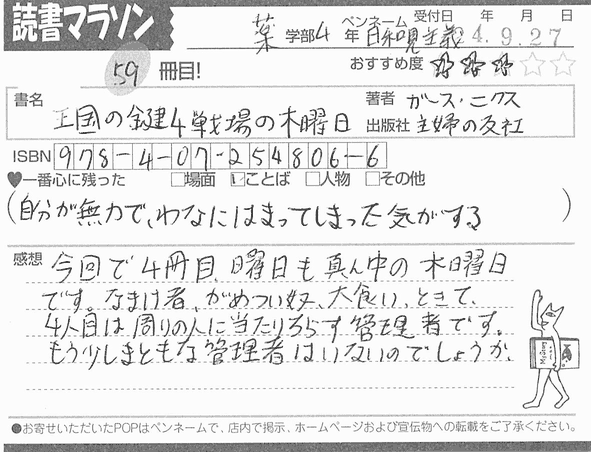 読書マラソン
59 冊目!
受付日 年 月 日
薬 学部 4 年 ペンネーム 日和見主義 24.9.27
おすすめ度 ☆☆☆☆☆
書名 王国の鍵4 戦場の木曜日
著者 ガース・ニクス
出版社 主婦の友社
ISBN 978-4-07-254806-6
♥一番心に残った □場面 ☑ことば □人物 □その他
(自分が無力で、わなにはまってしまった気がする)
感想 今回で4冊目、曜日も真ん中の木曜日
です。なまけ者、がめつい奴、大食い、ときて、
4人目は周りの人に当たりちらす管理者です。
もう少しまともな管理者はいないのでしょうか。
●お寄せいただいたPOPはペンネームで、店内で掲示、ホームページおよび宣伝物への転載をご了承ください。